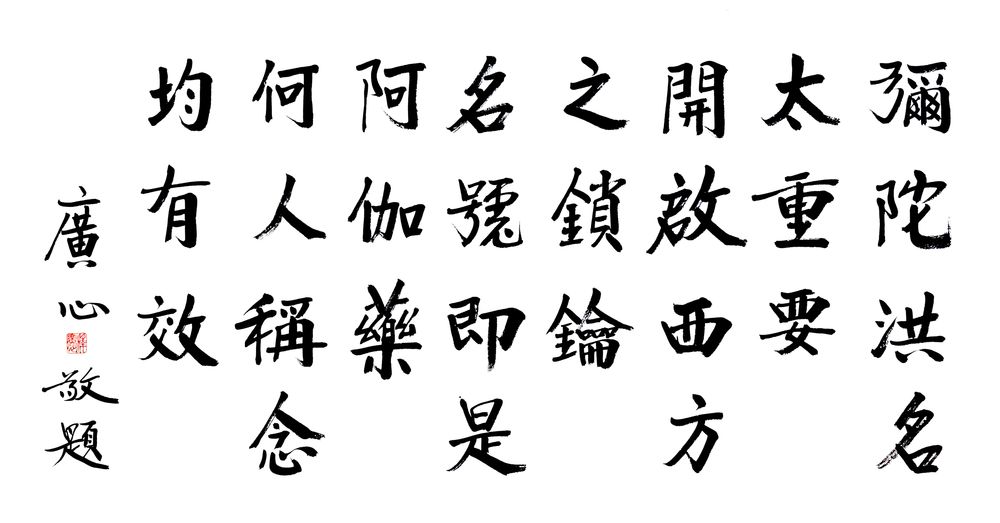 彌陀洪名
太重要
開啟西方
之鎖鑰
名號即是
阿伽藥
何人稱念
均有效
廣心敬題